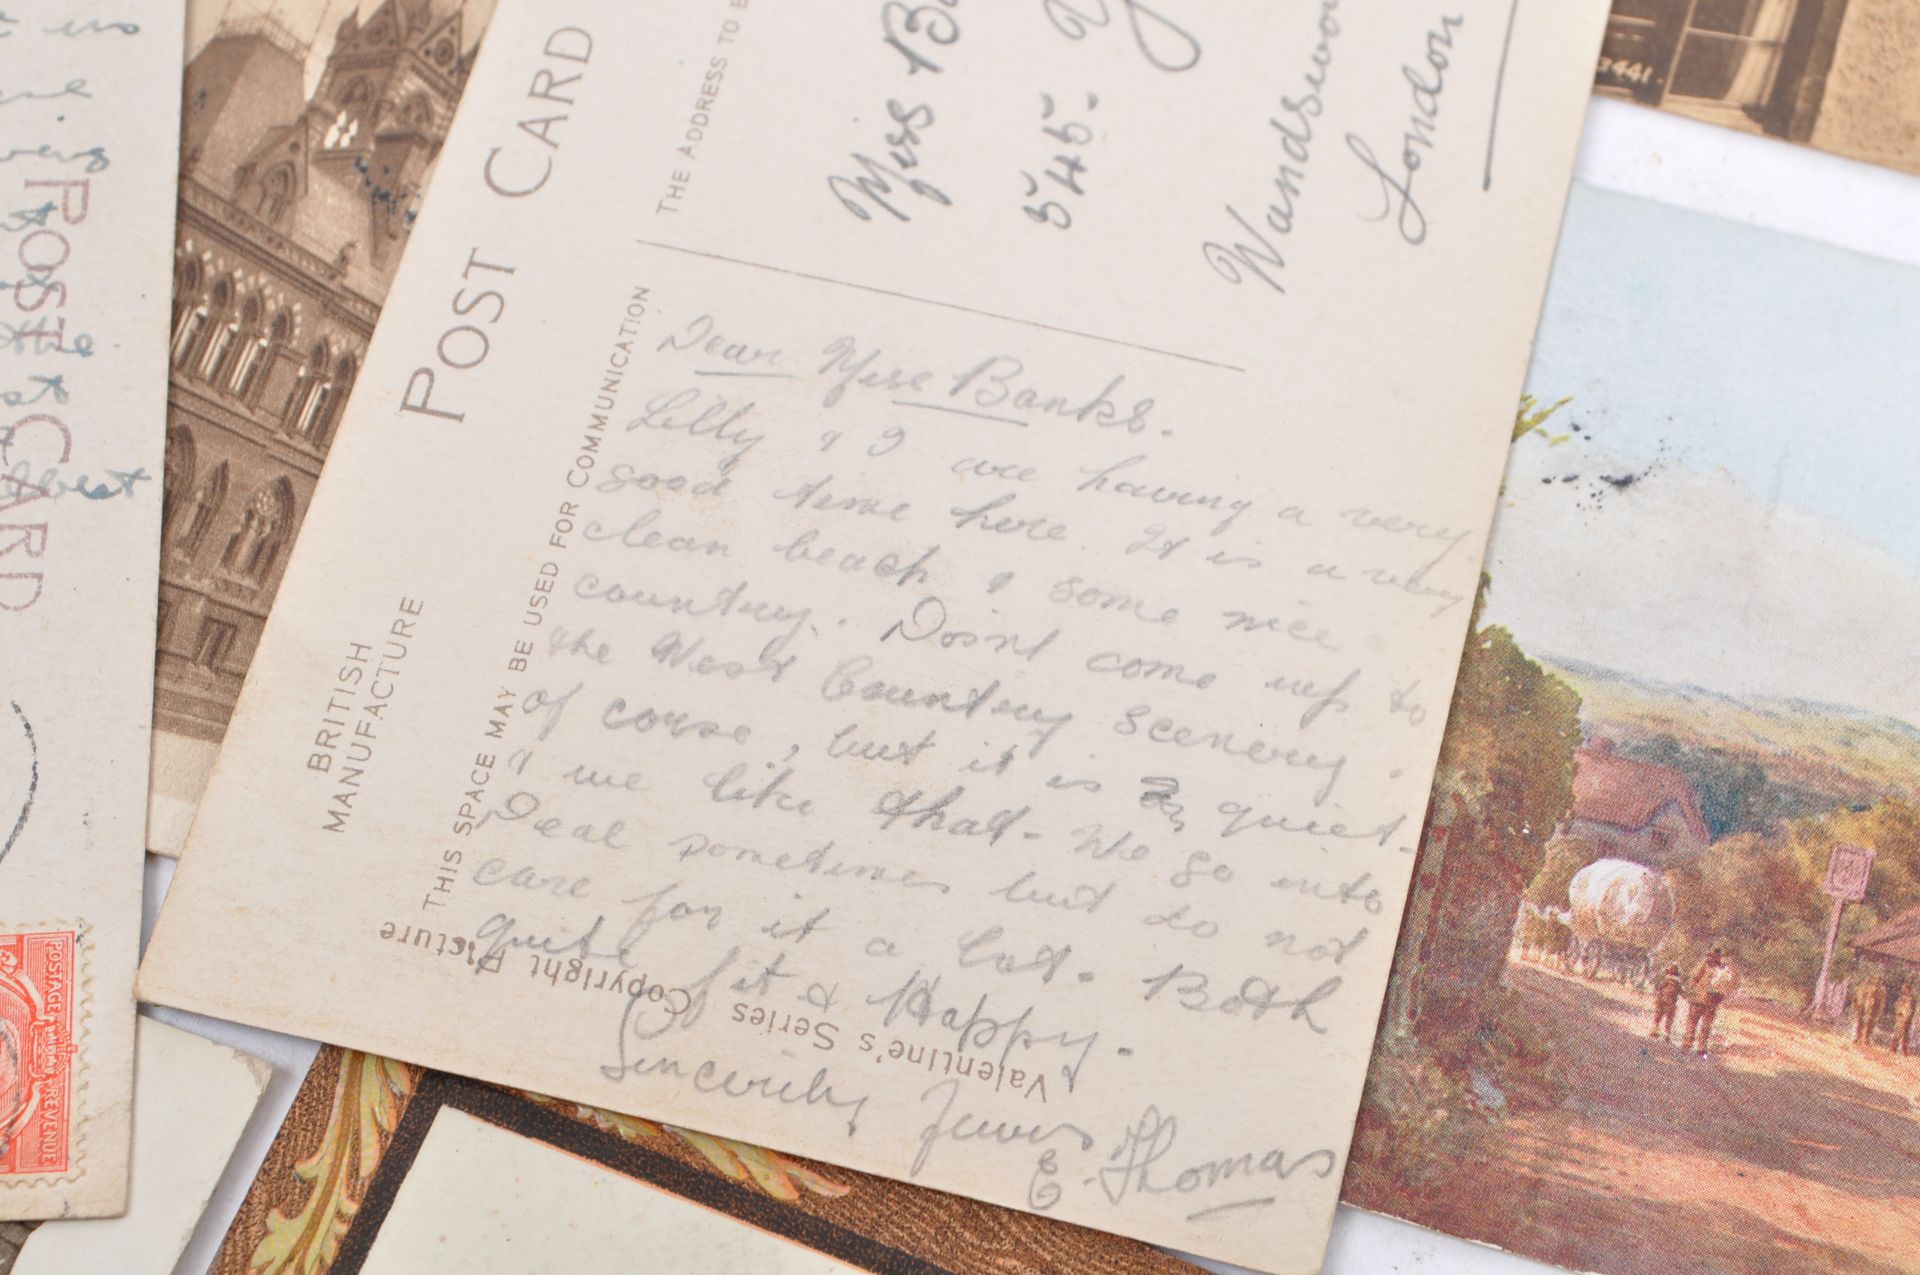 POST CARD
THE ADDRESS TO
Miss
545.
London
THIS SPACE MAY BE USED FOR COMMUNICATION
BRITISH
MANUFACTURE
Dear Miss Banks.
Lilly & I are having a very
good time here. It is a very
clean beach & some nice
country. Dosnt come up to
the West Country scenery.
of corse, but it is quiet.
& we like that. We go into
Deal sometimes but do not
care for it a lot. Both
quite fit & Happy.
Sincerily Yours
E. Thomas
Valentine's Series Copyright Picture
POST CARD
the
best
POSTAGE
REVENUE
3441.